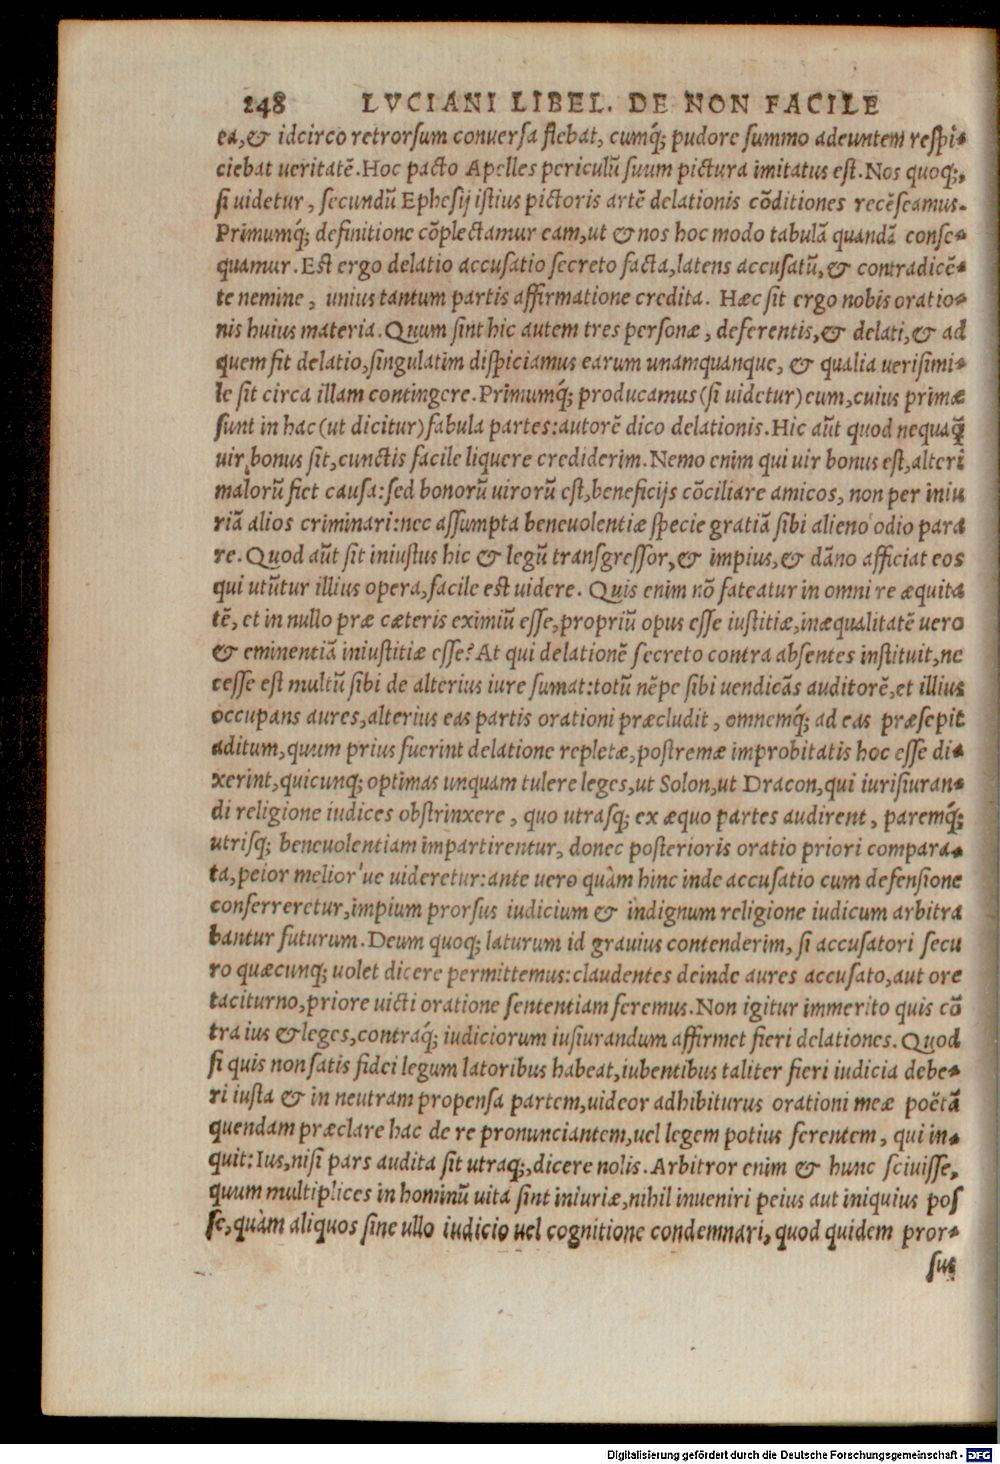 248 LVCIANI LIBEL. DE NON FACILE
ea,& idcirco retrorsum conuersa flebat, cumq́; pudore summo adeuntem respi-
ciebat ueritatē. Hoc pacto Apelles periculū suum pictura imitatus est. Nos quoq;,
si uidetur, secundū Ephesij istius pictoris artē delationis cōditiones recēseamus.
Primumq́; definitione cōplectamur eam,ut & nos hoc modo tabulā quandā conse-
quamur. Est ergo delatio accusatio secreto facta,latens accusatū,& contradicē-
te nemine, unius tantum partis affirmatione credita. Hæc sit ergo nobis oratio-
nis huius materia. Quum sint hic autem tres personæ, deferentis,& delati,& ad
quem fit delatio,singulatim dispiciamus earum unamquanque, & qualia uerisimi-
le sit circa illam contingere. Primumq́; producamus (si uidetur) eum,cuius primæ
sunt in hac (ut dicitur) fabula partes: autorē dico delationis. Hic aūt quod nequaq̄
uir bonus sit,cunctis facile liquere crediderim. Nemo enim qui uir bonus est,alteri
malorū fiet causa: sed bonorū uirorū est,beneficijs cōciliare amicos, non per iniu
riā alios criminari: nec assumpta beneuolentiæ specie gratiā sibi alieno odio para
re. Quod aūt sit iniustus hic & legū transgressor,& impius,& dāno afficiat eos
qui utūtur illius opera,facile est uidere. Quis enim nō fateatur in omni re æquita
tē, et in nullo præ cæteris eximiū esse,propriū opus esse iustitiæ,inæqualitatē uero
& eminentiā iniustitiæ esse? At qui delationē secreto contra absentes instituit,ne
cesse est multū sibi de alterius iure sumat: totū nēpe sibi uendicās auditorē,et illius
occupans aures,alterius eas partis orationi præcludit, omnemq́; ad eas præsepit
aditum,quum prius fuerint delatione repletæ,postremæ improbitatis hoc esse di-
xerint,quicunq; optimas unquam tulere leges,ut Solon,ut Dracon,qui iurisiuran-
di religione iudices obstrinxere, quo utrasq; ex æquo partes audirent, paremq́;
utrisq; beneuolentiam impartirentur, donec posterioris oratio priori compara-
ta,peior melior'ue uideretur: ante uero quàm hinc inde accusatio cum defensione
conferreretur,impium prorsus iudicium & indignum religione iudicum arbitra
bantur futurum. Deum quoq; laturum id grauius contenderim, si accusatori secu
ro quæcunq; uolet dicere permittemus: claudentes deinde aures accusato,aut ore
taciturno,priore uicti oratione sententiam feremus. Non igitur immerito quis cō
tra ius & leges,contraq́; iudiciorum iusiurandum affirmet fieri delationes. Quod
si quis non satis fidei legum latoribus habeat,iubentibus taliter fieri iudicia debe-
ri iusta & in neutram propensa partem,uideor adhibiturus orationi meæ poëtā
quendam præclare hac de re pronunciantem,uel legem potius ferentem, qui in-
quit: Ius,nisi pars audita sit utraq;,dicere nolis. Arbitror enim & hunc sciuisse,
quum multiplices in hominū uita sint iniuriæ,nihil inueniri peius aut iniquius pos
se,quàm aliquos sine ullo iudicio uel cognitione condemnari,quod quidem pror-
sus
Digitalisierung gefördert durch die Deutsche Forschungsgemeinschaft - DFG